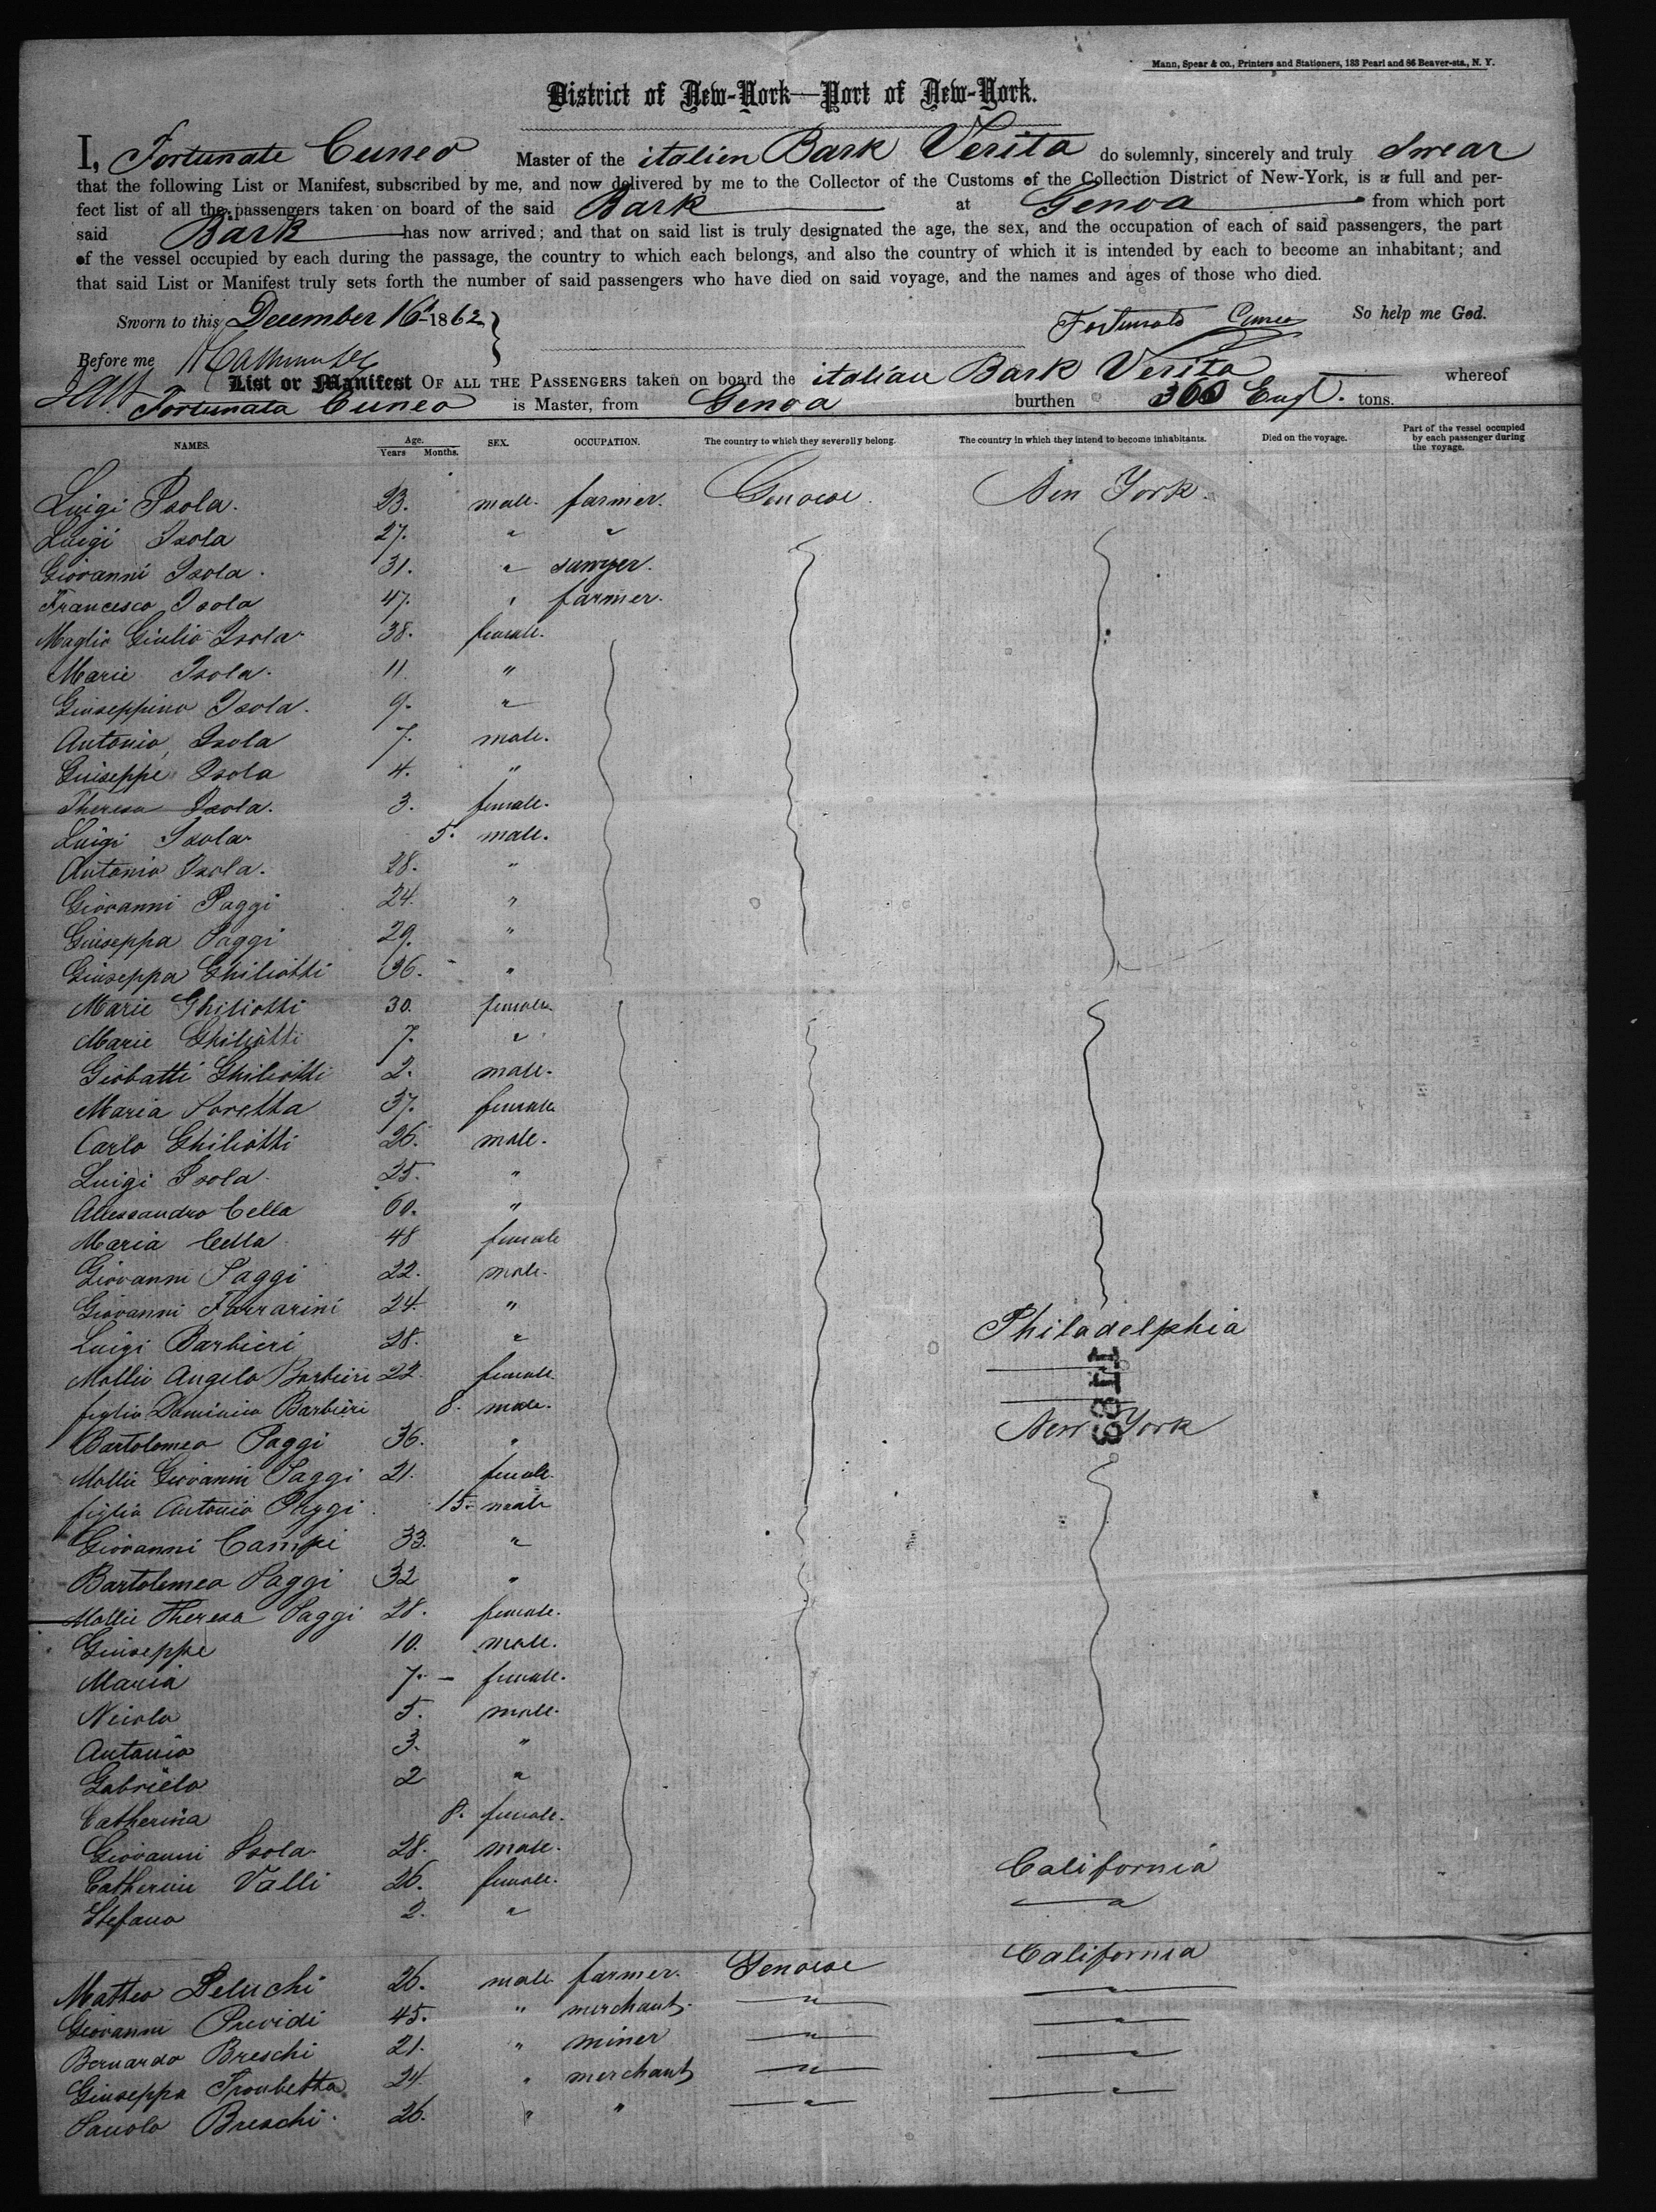 Mann, Spear & co., Printers and Stationers, 133 Pearl and 86 Beaver-sts., N. Y.
District of New-York—Port of New-York.
I, Fortunate Cuneo Master of the italien Bark Verita do solemnly, sincerely and truly Swear
that the following List or Manifest, subscribed by me, and now delivered by me to the Collector of the Customs of the Collection District of New-York, is a full and per-
fect list of all the passengers taken on board of the said Bark at Genoa from which port
said Bark has now arrived; and that on said list is truly designated the age, the sex, and the occupation of each of said passengers, the part
of the vessel occupied by each during the passage, the country to which each belongs, and also the country of which it is intended by each to become an inhabitant; and
that said List or Manifest truly sets forth the number of said passengers who have died on said voyage, and the names and ages of those who died.
Sworn to this December 16t 1862 Fortunato Cuneo So help me God.
Before me
List or Manifest OF ALL THE PASSENGERS taken on board the italian Bark Verita whereof
Fortunata Cuneo is Master, from Genoa burthen 300 Engl. tons.
NAMES. Age. Years Months. SEX. OCCUPATION. The country to which they severally belong. The country in which they intend to become inhabitants. Died on the voyage. Part of the vessel occupied by each passenger during the voyage.
Luigi Isola. 23. male. farmer. Genoese. New York.
Luigi Isola 27. " "
Giovanni Isola. 31. " sawyer.
Francesco Isola 47. " farmer.
Maglia Giulia Isola. 38. female.
Marie Isola. 11. "
Giuseppina Isola. 9. "
Antonio Isola 7. male.
Guiseppe Isola 4. "
Theresa Isola. 3. female.
Luigi Isola. 5. male.
Antonio Isola. 28. "
Giovanni Paggi 24. "
Guiseppa Paggi 29. "
Giuseppa Ghiliotti 36. "
Marie Ghiliotti 30. female.
Marie Ghiliotti 7. "
Giobatti Ghiliotti 2. male.
Maria Loretta 37. female
Carlo Ghiliotti 26. male.
Luigi Isola. 25. "
Allessandro Cella 60. "
Maria Cella 48 female
Giovanni Paggi 22. male.
Giovanni Farrarini 24. "
Luigi Barbieri 28. " Philadelphia
Mollie Angelo Barbieri 22. female
figlio Dominico Barbieri 8. male.
1189
Bartolomeo Paggi 36. " New York
Mollie Giovanni Paggi 21. female.
figlio Antonio Paggi 15. male
Giovanni Campi 33. "
Bartolomeo Paggi 32 "
Mollie Theresa Paggi 28. female.
Giuseppe 10. male.
Maria 7. female.
Nicola 5. male.
Antonio 3. "
Gabrielo 2 "
Catherina 8. female.
Giovanni Isola. 28. male. California
Catherine Valli 26. female. "
Stefano 2. "
Matteo Peluchi 26. male farmer. Genoese California
Geovanni Prividi 45. " merchant. " "
Bernardo Breschi 21. " miner " "
Giuseppa Troubetta 24. " merchant " "
Pauolo Breschi. 26. " " " "